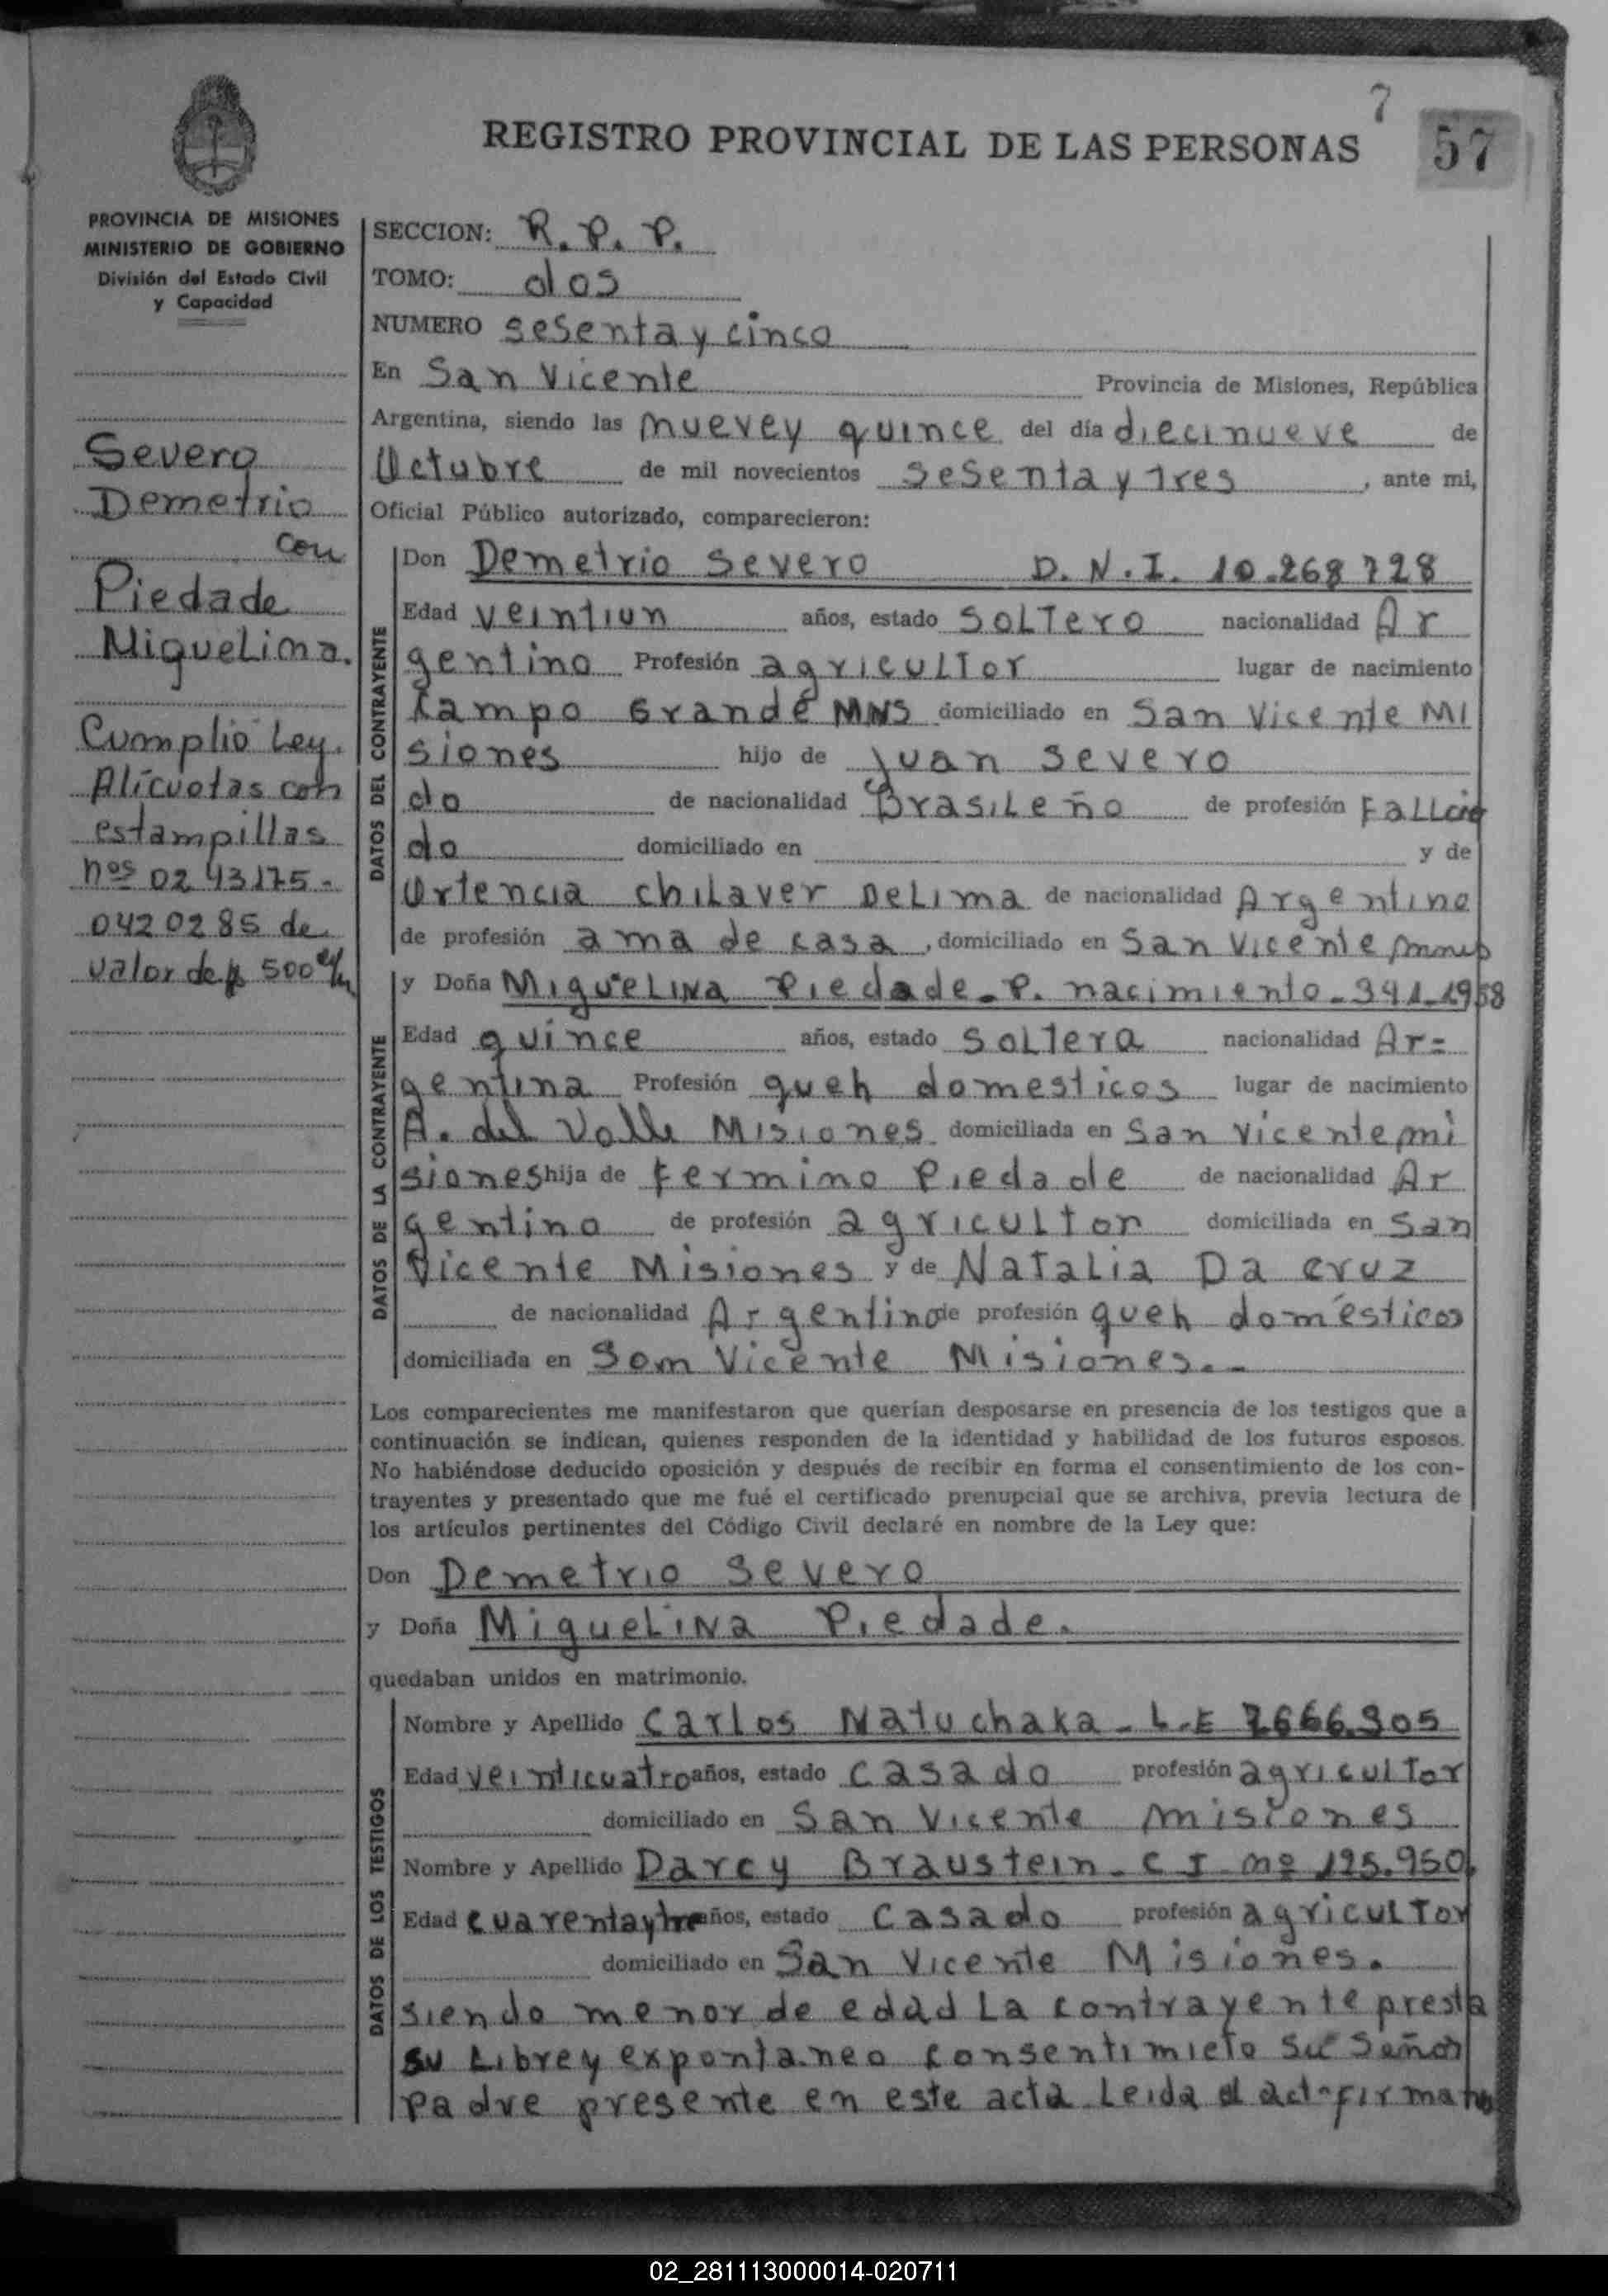 7
REGISTRO PROVINCIAL DE LAS PERSONAS
57
PROVINCIA DE MISIONES
MINISTERIO DE GOBIERNO
División del Estado Civil
y Capacidad
Severo
Demetrio
con
Piedade
Miguelina.
Cumplio Ley.
Alícuotas con
estampillas
nos 0243175-
0420285 de
valor de $ 500
SECCION: R. P. P.
TOMO: dos
NUMERO sesenta y cinco
En San Vicente Provincia de Misiones, República
Argentina, siendo las nueve y quince del día diecinueve de
Octubre de mil novecientos sesenta y tres, ante mi,
Oficial Público autorizado, comparecieron:
DATOS DEL CONTRAYENTE
Don Demetrio Severo D. N. I. 10.268728
Edad veintiun años, estado soltero nacionalidad Ar
gentino Profesión agricultor lugar de nacimiento
Campo Grande MNS domiciliado en San Vicente Mi
siones hijo de Juan Severo
do de nacionalidad Brasileño de profesión Fallcid
do domiciliado en y de
Ortencia Chilaver Delima de nacionalidad Argentino
de profesión ama de casa, domiciliado en San Vicente
DATOS DE LA CONTRAYENTE
y Doña Miguelina Piedade. P. nacimiento - 341-1958
Edad quince años, estado soltera nacionalidad Ar=
gentina Profesión queh domesticos lugar de nacimiento
A. del Valle Misiones domiciliada en San Vicente mi
siones hija de Fermino Piedade de nacionalidad Ar
gentino de profesión agricultor domiciliada en San
Vicente Misiones y de Natalia Da Cruz
de nacionalidad Argentino de profesión queh domésticos
domiciliada en San Vicente Misiones.-
Los comparecientes me manifestaron que querían desposarse en presencia de los testigos que a
continuación se indican, quienes responden de la identidad y habilidad de los futuros esposos.
No habiéndose deducido oposición y después de recibir en forma el consentimiento de los con-
trayentes y presentado que me fué el certificado prenupcial que se archiva, previa lectura de
los artículos pertinentes del Código Civil declaré en nombre de la Ley que:
Don Demetrio Severo
y Doña Miguelina Piedade.
quedaban unidos en matrimonio.
DATOS DE LOS TESTIGOS
Nombre y Apellido Carlos Natuchaka - L.E 7666.905
Edad veinticuatro años, estado casado profesión agricultor
domiciliado en San Vicente misiones
Nombre y Apellido Darcy Braustein - C I - nº 125.950.
Edad cuarentaytre años, estado casado profesión agricultor
domiciliado en San Vicente Misiones.
siendo menor de edad la contrayente presta
su Libre y expontaneo consentimieto su Señor
padre presente en este acta Leida el act-firman
02_281113000014-020711